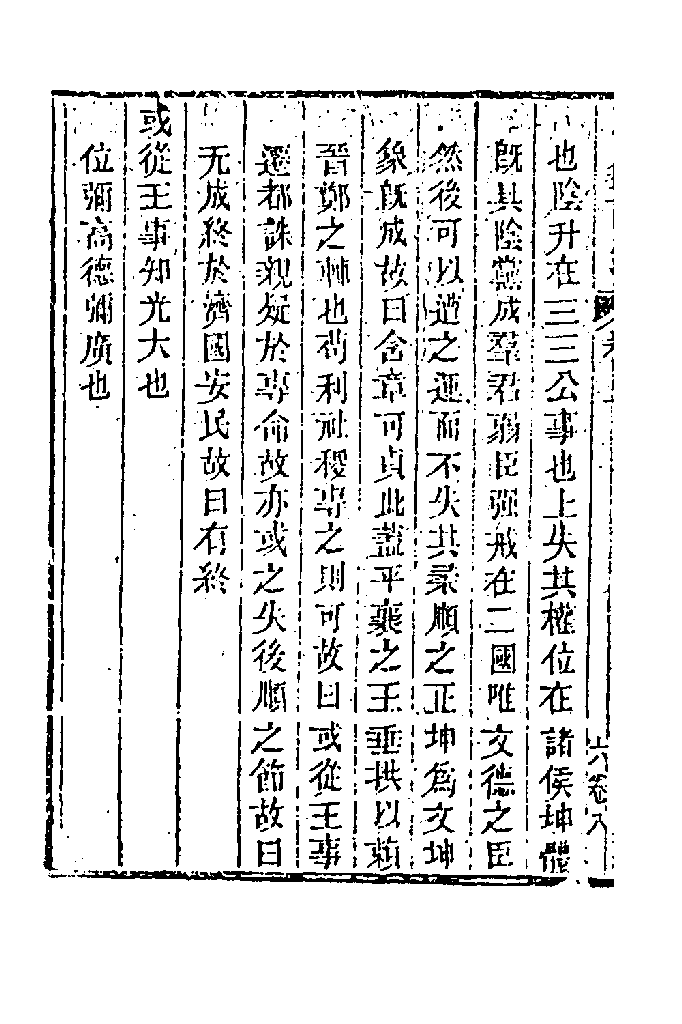 也陰升在三三公事也上失其權位在諸侯坤體
旣具陰黨成羣君弱臣强戒在二國唯文德之臣
然後可以遭之運而不失其柔順之正坤爲文坤
象旣成故曰含章可貞此蓋平襄之王垂拱以賴
晉鄭之輔也苟利社稷專之則可故曰或從王事
遷都誅親疑於專命故亦或之失後順之節故曰
无成終於濟國安民故曰有終
或從王事知光大也
位彌高德彌廣也